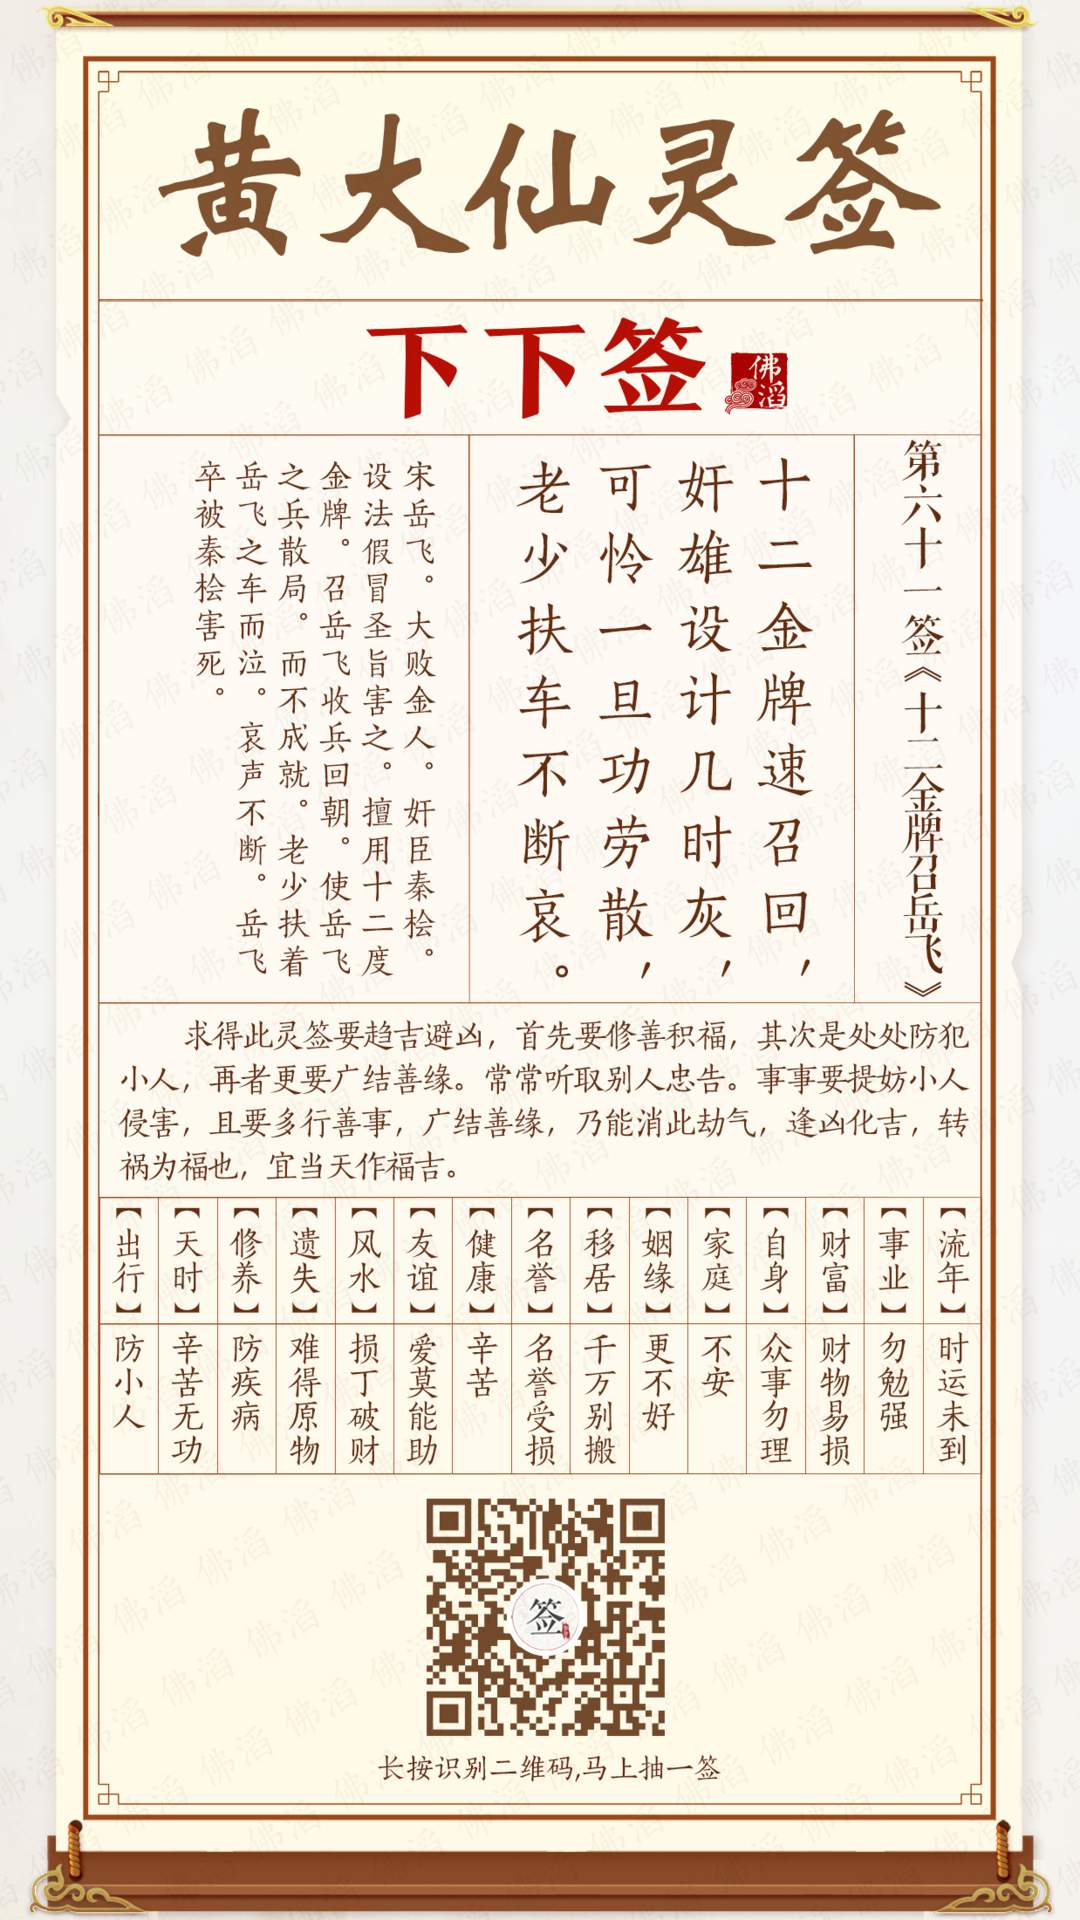 黄大仙灵签
下下签
佛滔
第六十一签《十二金牌召岳飞》
十二金牌速召回，
奸雄设计几时灰，
可怜一旦功劳散，
老少扶车不断哀。
宋岳飞。大败金人。奸臣秦桧。
设法假冒圣旨害之。擅用十二度
金牌。召岳飞收兵回朝。使岳飞
之兵散局。而不成就。老少扶着
岳飞之车而泣。哀声不断。岳飞
卒被秦桧害死。
求得此灵签要趋吉避凶，首先要修善积福，其次是处处防犯
小人，再者更要广结善缘。常常听取别人忠告。事事要提妨小人
侵害，且要多行善事，广结善缘，乃能消此劫气，逢凶化吉，转
祸为福也，宜当天作福吉。
【流年】时运未到
【事业】勿勉强
【财富】财物易损
【自身】众事勿理
【家庭】不安
【姻缘】更不好
【移居】千万别搬
【名誉】名誉受损
【健康】辛苦
【友谊】爱莫能助
【风水】损丁破财
【遗失】难得原物
【修养】防疾病
【天时】辛苦无功
【出行】防小人
签
长按识别二维码,马上抽一签